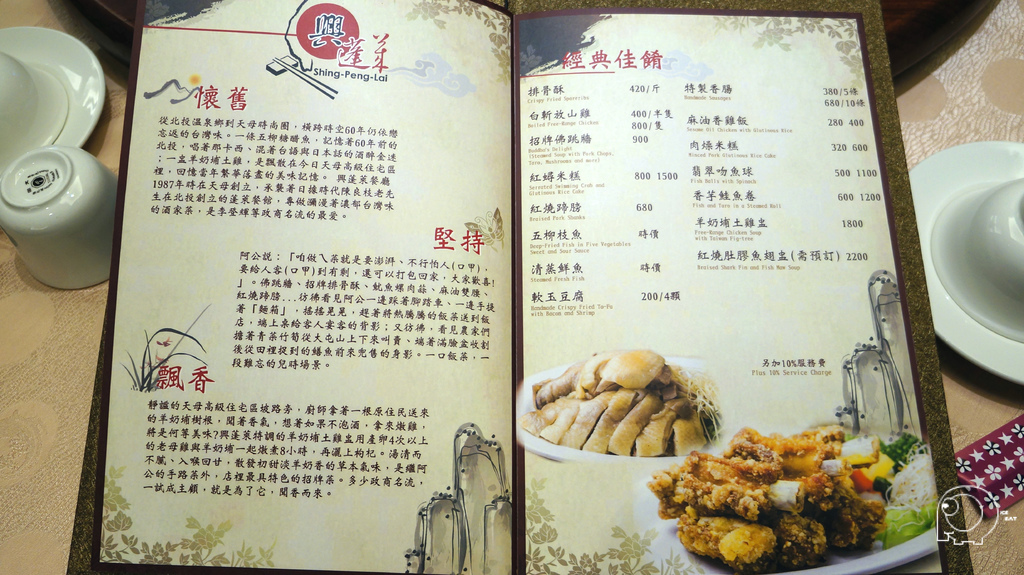 興蓬萊
Shing-Peng-Lai
懷舊
從北投溫泉鄉到天母時尚圈，橫跨時空60年仍依戀
忘返的台灣味。一條五柳糖醋魚，記憶著60年前的
北投，唱著那卡西、混著台語與日本話的酒酣金迷
；一盅羊奶埔土雞，是飄散在今日天母高級住宅區
裡，回憶當年繁華落盡的美味記憶。 興蓬萊餐廳
1987年時在天母創立，承襲著日據時代陳良枝老先
生在北投創立的蓬萊餐館，專做瀰漫著濃郁台灣味
的酒家菜，是李登輝等政商名流的最愛。
堅持
阿公說：「咱做ㄟ菜就是要澎湃、不行怕人(口甲)，
要給人客(口甲)到有剩，還可以打包回家，大家歡喜!
」。佛跳牆、招牌排骨酥、魷魚螺肉蒜、麻油雙腰、
紅燒蹄膀...彷彿看見阿公一邊踩著腳踏車、一邊手提
著「麵箱」，搖搖晃晃，趕著將熱騰騰的飯菜送到飯
店，端上桌給客人宴客的背影；又彷彿，看見農家們
擔著青菜竹筍從大屯山上下來叫賣、端著滿臉盆收割
後從田裡捉到的鱔魚前來兜售的身影。一口飯菜，一
段難忘的兒時場景。
飄香
靜謐的天母高級住宅區坡路旁，廚師拿著一根原住民送來
的羊奶埔樹根，聞著香氣，想著如果不泡酒，拿來燉雞，
將是何等美味?興蓬萊特調的羊奶埔土雞盅用產卵4次以上
的老母雞與羊奶埔一起燉煮8小時，再灑上枸杞。湯清而
不膩、入喉回甘，散發初甜淡羊奶香的草本氣味，是繼阿
公的手路菜外，店裡最具特色的招牌菜。多少政商名流，
一試成主顧，就是為了它，聞香而來。
經典佳餚
排骨酥 420/斤
Crispy Fried Spareribs
白斬放山雞 400/半隻
Boiled Free-Range Chicken 800/隻
招牌佛跳牆 900
Buddha's Delight
(Steamed Soup with Pork Chops,
Taro, Mushrooms and more)
紅蟳米糕 800 1500
Serrated Swimming Crab and
Glutinous Rice Cake
紅燒蹄膀 680
Braised Pork Shanks
五柳枝魚 時價
Deep-Fried Fish in Five Vegetables
Sweet and Sour Sauce
清蒸鮮魚 時價
Steamed Fresh Fish
軟玉豆腐 200/4顆
Handmade Crispy Fried To-Fu
with Bacon and Shrimp
特製香腸 380/5條
Handmade Sausages 680/10條
麻油香雞飯 280 400
Sesame Oil Chicken with Glutinous Rice
肉燥米糕 320 600
Minced Pork Glutinous Rice Cake
翡翠吻魚球 500 1100
Fish Balls with Spinach
香芋鮭魚卷 600 1200
Fish and Taro in a Steamed Roll
羊奶埔土雞盅 1800
Free-Range Chicken Soup
with Taiwan Fig-tree
紅燒肚膠魚翅盅(需預訂) 2200
Braised Shark Fin and Fish Maw Soup
另加10%服務費
Plus 10% Service Charge
ICE
EAT